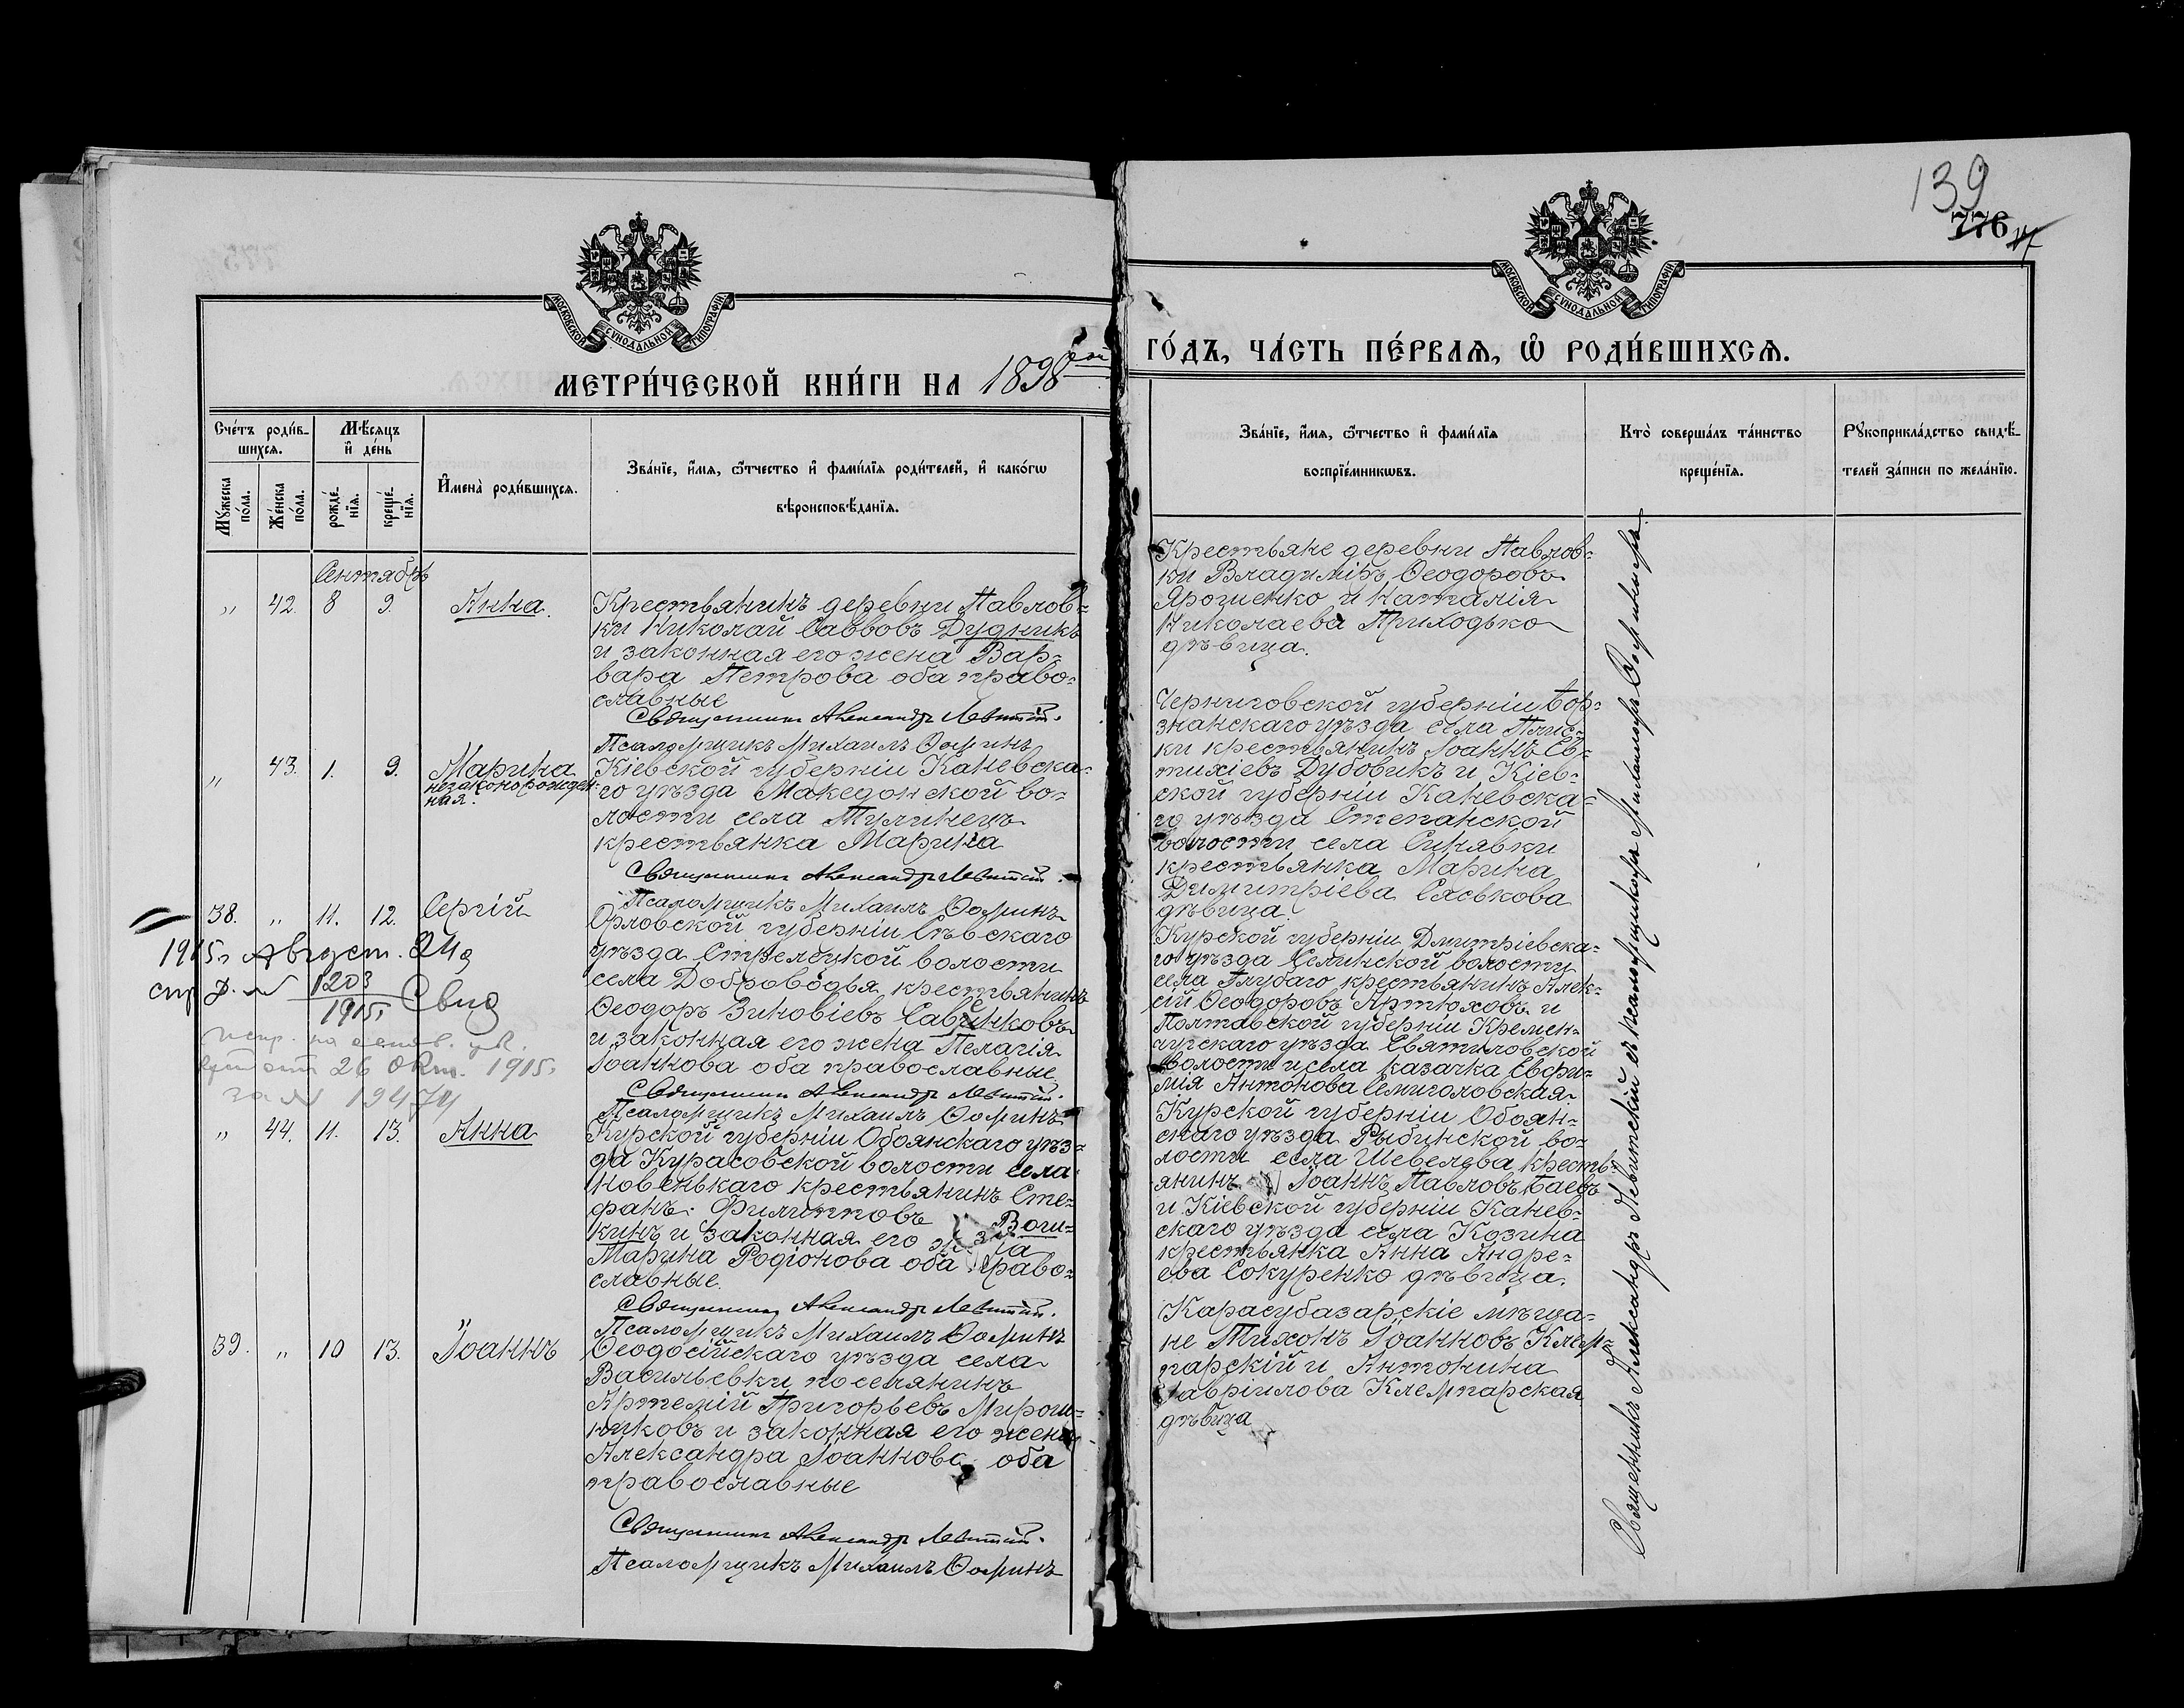 139
776
МОСКОВСКОЙ СѴНОДАЛЬНОЙ ТИПОГРАФІИ
МОСКОВСКОЙ СѴНОДАЛЬНОЙ ТИПОГРАФІИ
МЕТРИ́ЧЕСКОЙ КНИ́ГИ НА 1898ой
ГО́ДЪ, ЧА́СТЬ ПЕ́РВАѦ, Ѡ҆ РОДИ́ВШИХСѦ.
Сче́тъ роди́в-
шихсѧ.
Мꙋ́жеска по́ла.
Же́нска по́ла.
Мѣ́сѧцъ
и҆ де́нь
рожде́-
нїѧ.
креще́-
нїѧ.
И҆мена̀ роди́вшихсѧ.
Зва́нїе, и҆́мѧ, ѻ҆́тчество и҆ фами́лїѧ роди́телей, и҆ како́гѡ
вѣроисповѣ́данїѧ.
Зва́нїе, и҆́мѧ, ѻ҆́тчество и҆ фами́лїѧ
воспрїе́мникѡвъ.
Кто̀ соверша́лъ та́инство
креще́нїѧ.
Рꙋкоприкла́дство свидѣ́-
телей за́писи по жела́нїю.
Сентябрь
„ 42. 8 9. Анна.
Крестьянинъ деревни Павлов-
ки Николай Саввовъ Дудникъ
и законная его жена Вар-
вара Петрова оба право-
славные
Священникъ Александръ Левитскій.
Псаломщикъ Михаилъ Ѳоминъ
Крестьяне деревни Павлов-
ки Владиміръ Ѳеодоровъ
Ярошенко и Наталія
Николаева Приходько
дѣвица.
„ 43. 1. 9. Марина
незаконорожден-
ная.
Кіевской губерніи Каневска-
го уѣзда Македонской во-
лости села Тулинецъ
крестьянка Марина
Священникъ Александръ Левитскій.
Псаломщикъ Михаилъ Ѳоминъ
Черниговской губерніи Бор-
знанскаго уѣзда села Плис-
ки крестьянинъ Іоаннъ Ев-
тихіевъ Дубовикъ и Кіев-
ской губерніи Каневска-
го уѣзда Степанской
волости села Синявки
крестьянка Марина
Димитріева Сяськова
дѣвица.
38. „ 11. 12. Сергій
Орловской губерніи Сѣвскаго
уѣзда Стрелецкой волости
села Доброводья крестьянинъ
Ѳеодоръ Зиновіевъ Савенковъ
и законная его жена Пелагія
Іоаннова оба православные
Священникъ Александръ Левитскій.
Псаломщикъ Михаилъ Ѳоминъ
1915г Август. 24д
1203
1915г. Свид
26 Окт. 1915г.
за № 19474
Курской губерніи Дмитріевска-
го уѣзда Селинской волости
села Глубаго крестьянинъ Алек-
сій Ѳеодоровъ Артюховъ и
Полтавской губерніи Кремен-
чугскаго уѣзда Святиловской
волости и села казачка Евфи-
мія Антонова Семиголовская.
„ 44. 11. 13. Анна
Курской губерніи Обоянскаго уѣз-
да Курасовской волости села
Новенькаго крестьянинъ Сте-
фанъ Филипповъ Вои-
кинъ и законная его жена
Марина Родіонова оба право-
славные.
Священникъ Александръ Левитскій.
Псаломщикъ Михаилъ Ѳоминъ
Курской губерніи Обоян-
скаго уѣзда Рыбинской во-
лости села Шевелева кресть-
янинъ Іоаннъ Павловъ Баевъ
и Кіевской губерніи Канев-
скаго уѣзда села Козина
крестьянка Анна Андре-
ева Сокуренко дѣвица.
39. „ 10 13. Іоаннъ
Ѳеодосійскаго уѣзда села
Васильевки поселянинъ
Артемій Григорьевъ Мирош-
никовъ и законная его жена
Александра Іоаннова оба
православные
Священникъ Александръ Левитскій.
Псаломщикъ Михаилъ Ѳоминъ
Карасубазарскіе мѣща-
не Тихонъ Іоанновъ Клем-
парскій и Антонина
Гавріилова Клемпарская
дѣвица
Священникъ Александръ Левитскій съ псаломщикомъ Михаиломъ Ѳоминымъ.